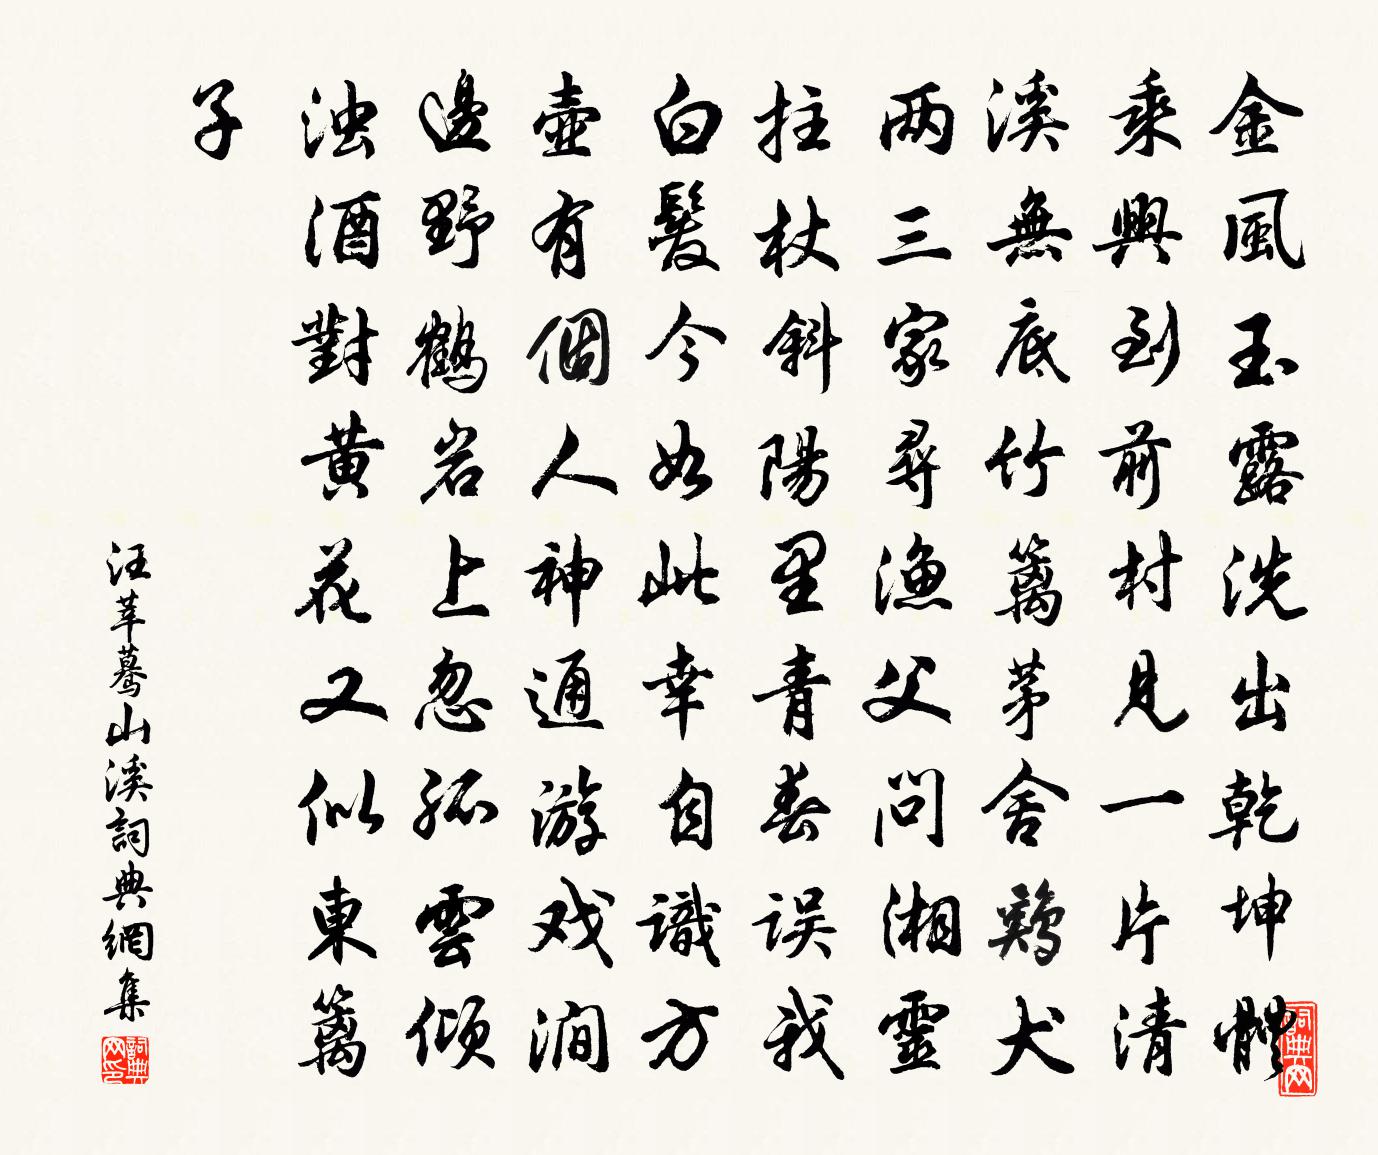 金風玉露洗出乾坤體
乘興到前村見一片清
溪無底竹籬茅舍鶏犬
两三家尋漁父問湘靈
拄杖斜陽里青春误我
白髮今如此幸自識方
壺有個人神通游戏澗
邊野鶴岩上忽孤雲倾
浊酒對黄花又似東籬
子
汪莘驀山溪詞典網集
詞典网
詞典网印